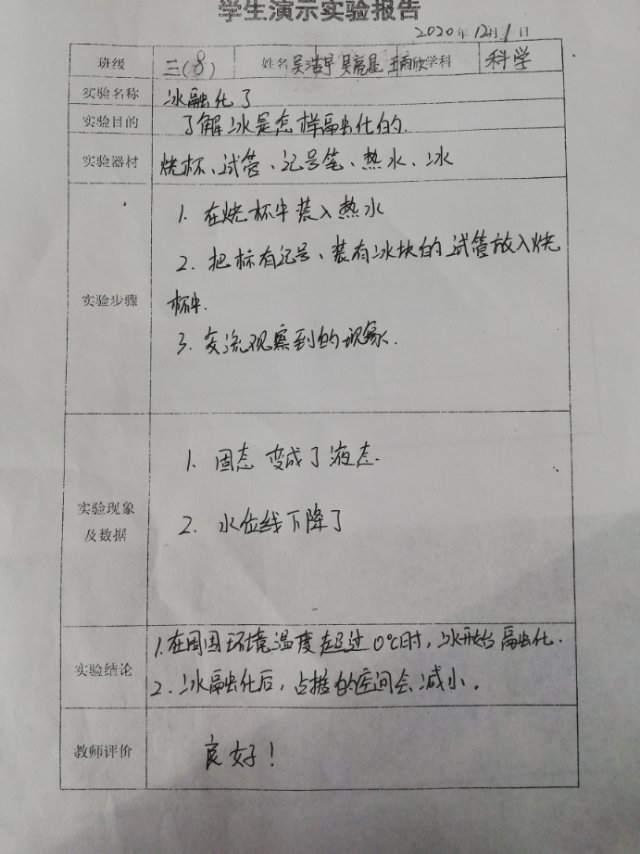 学生演示实验报告
2020年12月1日
班级 三(8) 姓名 吴浩宇 吴亮星 王雨欣 学科 科学
实验名称 冰融化了
实验目的 了解冰是怎样融化的.
实验器材 烧杯、试管、记号笔、热水、冰
实验步骤
1. 在烧杯中装入热水
2. 把标有记号、装有冰块的试管放入烧
杯中.
3. 交流观察到的现象.
实验现象
及数据
1. 固态变成了液态.
2. 水位线下降了
实验结论
1.在周围环境温度在超过0℃时,冰开始融化.
2.冰融化后,占据的空间会减小.
教师评价 良好!